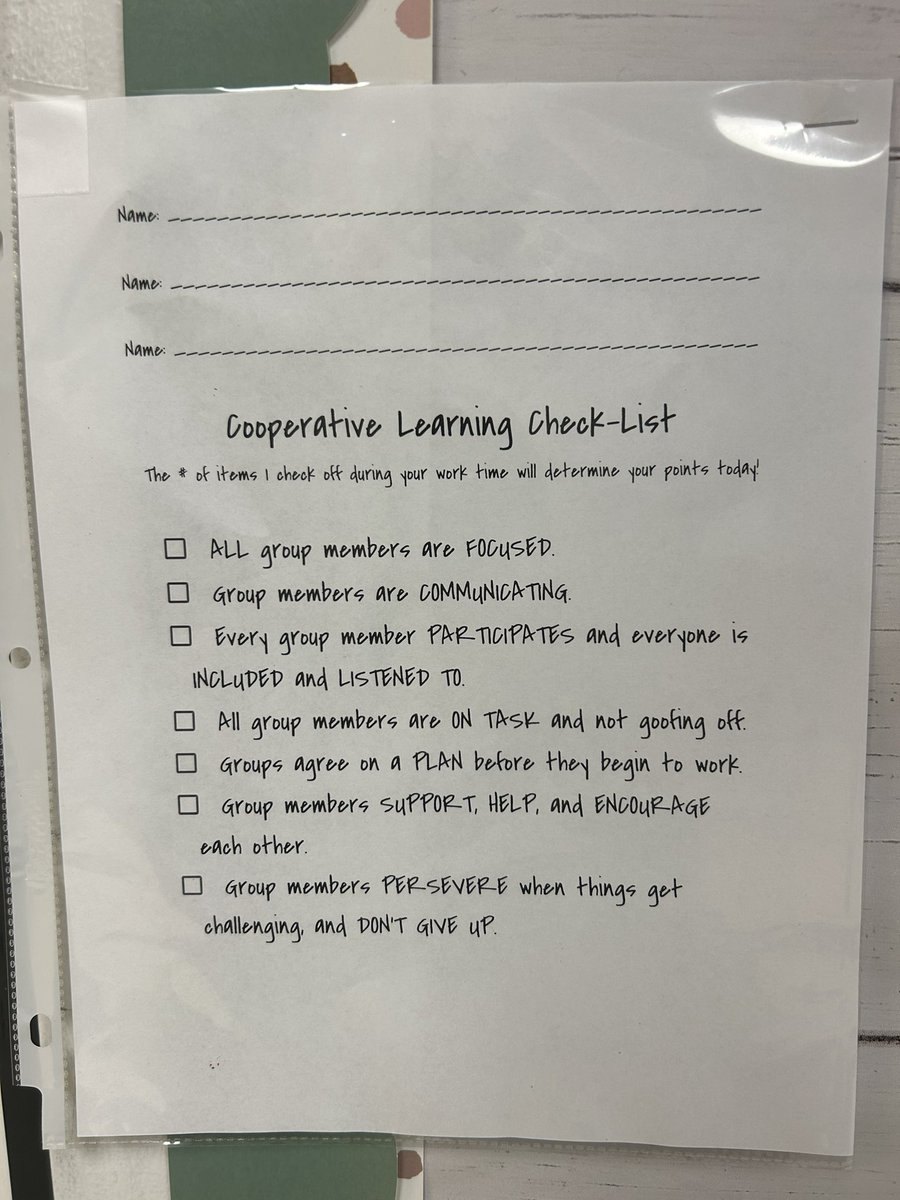 Name: ____________________
Name: ____________________
Name: ____________________
Cooperative Learning Check-List
The # of items I check off during your work time will determine your points today!
☐ ALL group members are FOCUSED.
☐ Group members are COMMUNICATING.
☐ Every group member PARTICIPATES and everyone is
INCLUDED and LISTENED TO.
☐ All group members are ON TASK and not goofing off.
☐ Groups agree on a PLAN before they begin to work.
☐ Group members SUPPORT, HELP, and ENCOURAGE
each other.
☐ Group members PERSEVERE when things get
challenging, and DON'T GIVE UP.